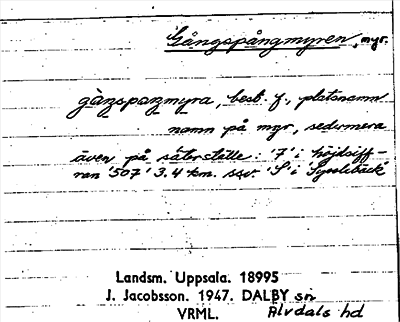 Gångspångmyren, myr.
gångspangmyra, best. f., platsnamn
namn på myr, sedermera
även på säterställe: '7' i höjdsiff-
ran '507' 3.4 km. ssv. 'S' i 'Sysslebäck'
Landsm. Uppsala. 18995
J. Jacobsson. 1947. DALBY sn
VRML. Älvdals hd